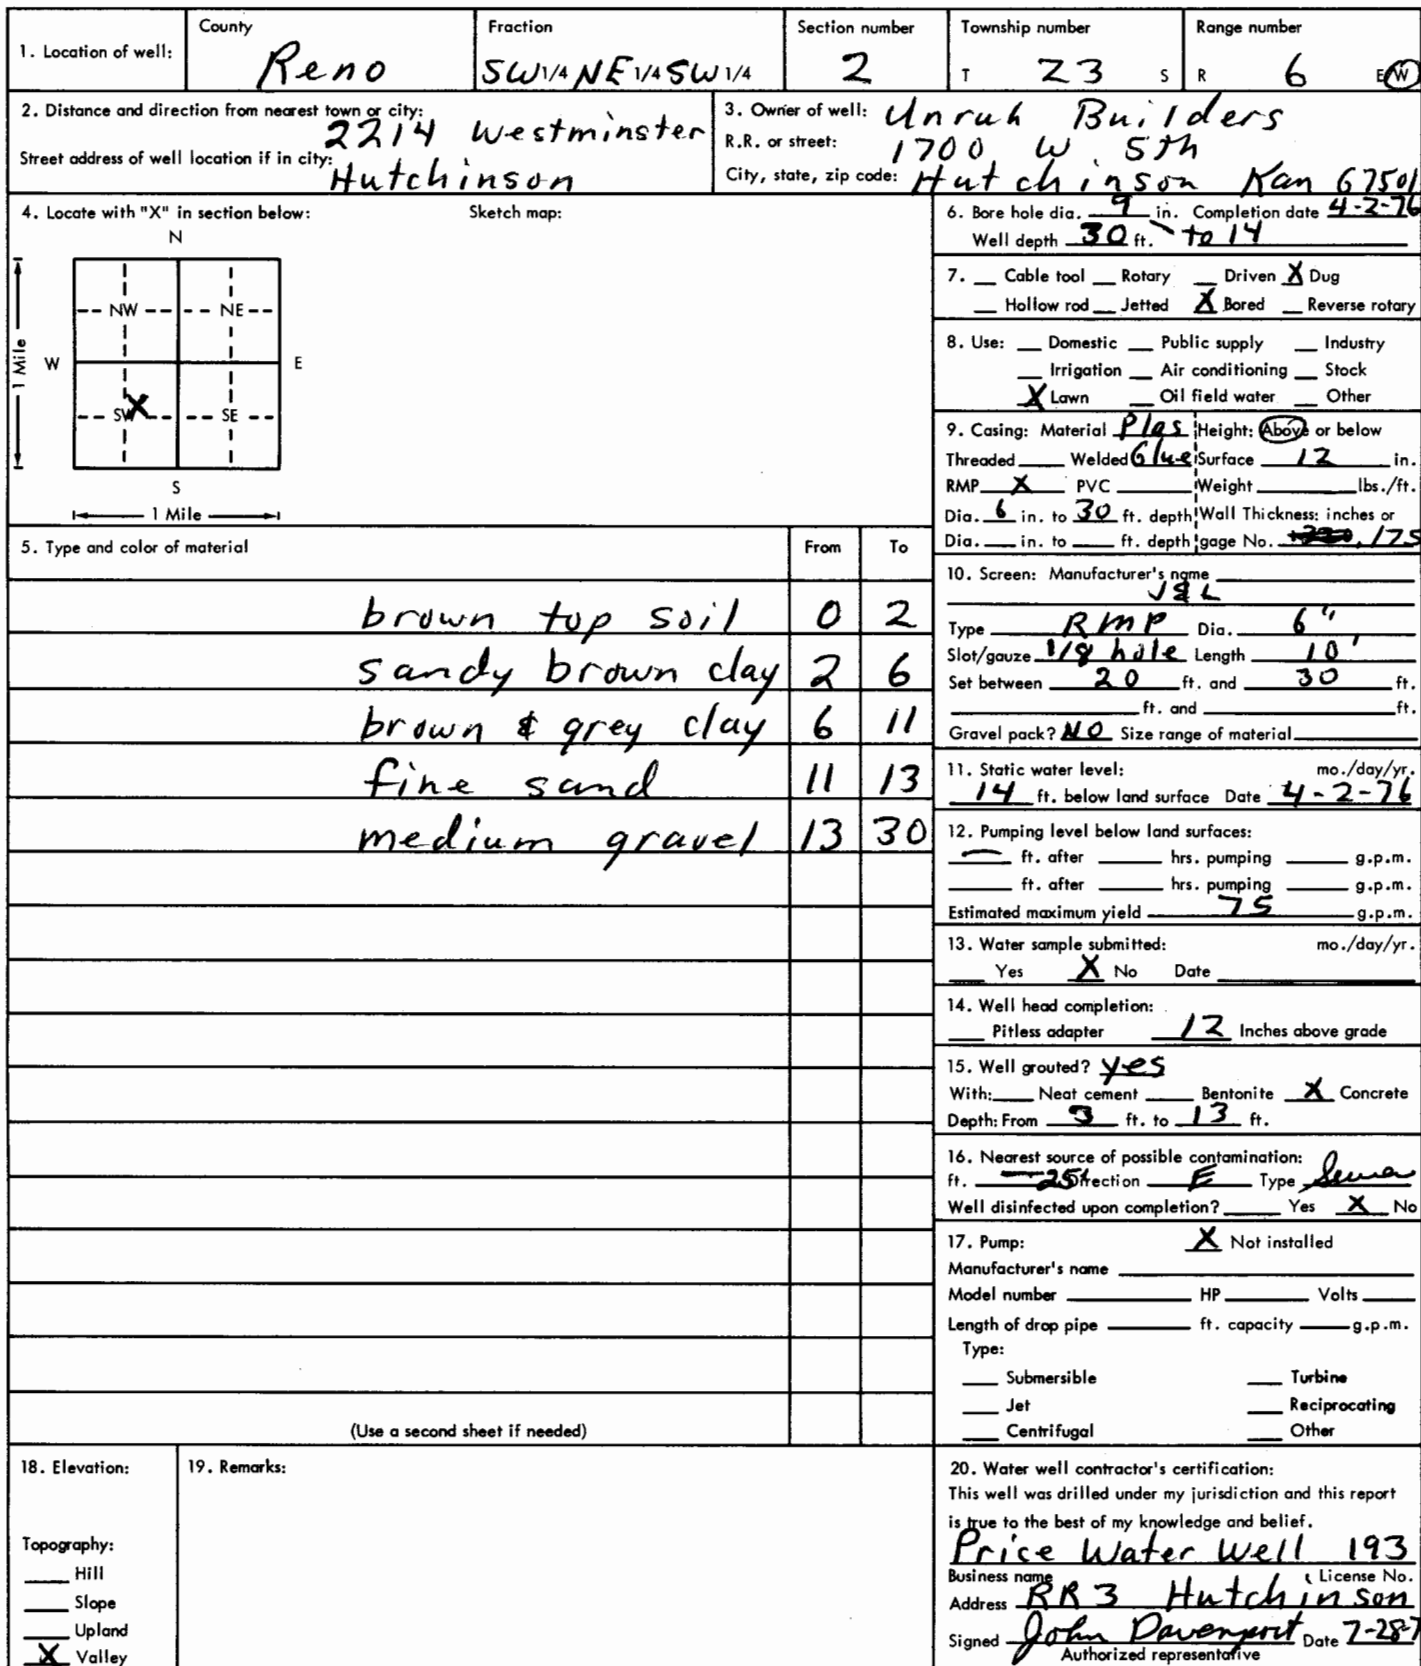 1. Location of well: County Reno Fraction SW 1/4 NE 1/4 SW 1/4 Section number 2 Township number T 23 S Range number R 6 E W
2. Distance and direction from nearest town or city: 2214 Westminster
Street address of well location if in city: Hutchinson
3. Owner of well: Unruh Builders
R.R. or street: 1700 W. 5th
City, state, zip code: Hutchinson Kan 67501
4. Locate with "X" in section below: Sketch map:
N
NW NE
W E
1 Mile
SW X SE
S
1 Mile
5. Type and color of material From To
brown top soil 0 2
sandy brown clay 2 6
brown & grey clay 6 11
fine sand 11 13
medium gravel 13 30
(Use a second sheet if needed)
6. Bore hole dia. 9 in. Completion date 4-2-76
Well depth 30 ft. to 14
7. __ Cable tool __ Rotary __ Driven X Dug
__ Hollow rod __ Jetted X Bored __ Reverse rotary
8. Use: __ Domestic __ Public supply __ Industry
__ Irrigation __ Air conditioning __ Stock
X Lawn __ Oil field water __ Other
9. Casing: Material Plas Height: Above or below
Threaded ____ Welded Glue Surface 12 in.
RMP X PVC ____ Weight ____ lbs./ft.
Dia. 6 in. to 30 ft. depth Wall Thickness: inches or
Dia. __ in. to __ ft. depth gage No. .175
10. Screen: Manufacturer's name ____
J & L
Type RMP Dia. 6"
Slot/gauze 1/8 hole Length 10'
Set between 20 ft. and 30 ft.
____ ft. and ____ ft.
Gravel pack? NO Size range of material ____
11. Static water level: mo./day/yr.
14 ft. below land surface Date 4-2-76
12. Pumping level below land surfaces:
— ft. after ____ hrs. pumping ____ g.p.m.
____ ft. after ____ hrs. pumping ____ g.p.m.
Estimated maximum yield 75 g.p.m.
13. Water sample submitted: mo./day/yr.
__ Yes X No Date ____
14. Well head completion:
__ Pitless adapter 12 Inches above grade
15. Well grouted? yes
With: __ Neat cement __ Bentonite X Concrete
Depth: From 3 ft. to 13 ft.
16. Nearest source of possible contamination:
ft. 25 Direction E Type Sewer
Well disinfected upon completion? __ Yes X No
17. Pump: X Not installed
Manufacturer's name ____
Model number ____ HP ____ Volts ____
Length of drop pipe ____ ft. capacity ____ g.p.m.
Type:
__ Submersible __ Turbine
__ Jet __ Reciprocating
__ Centrifugal __ Other
18. Elevation:
Topography:
__ Hill
__ Slope
__ Upland
X Valley
19. Remarks:
20. Water well contractor's certification:
This well was drilled under my jurisdiction and this report
is true to the best of my knowledge and belief.
Price Water Well 193
Business name License No.
Address RR 3 Hutchinson
Signed John Davenport Date 7-28-7
Authorized representative